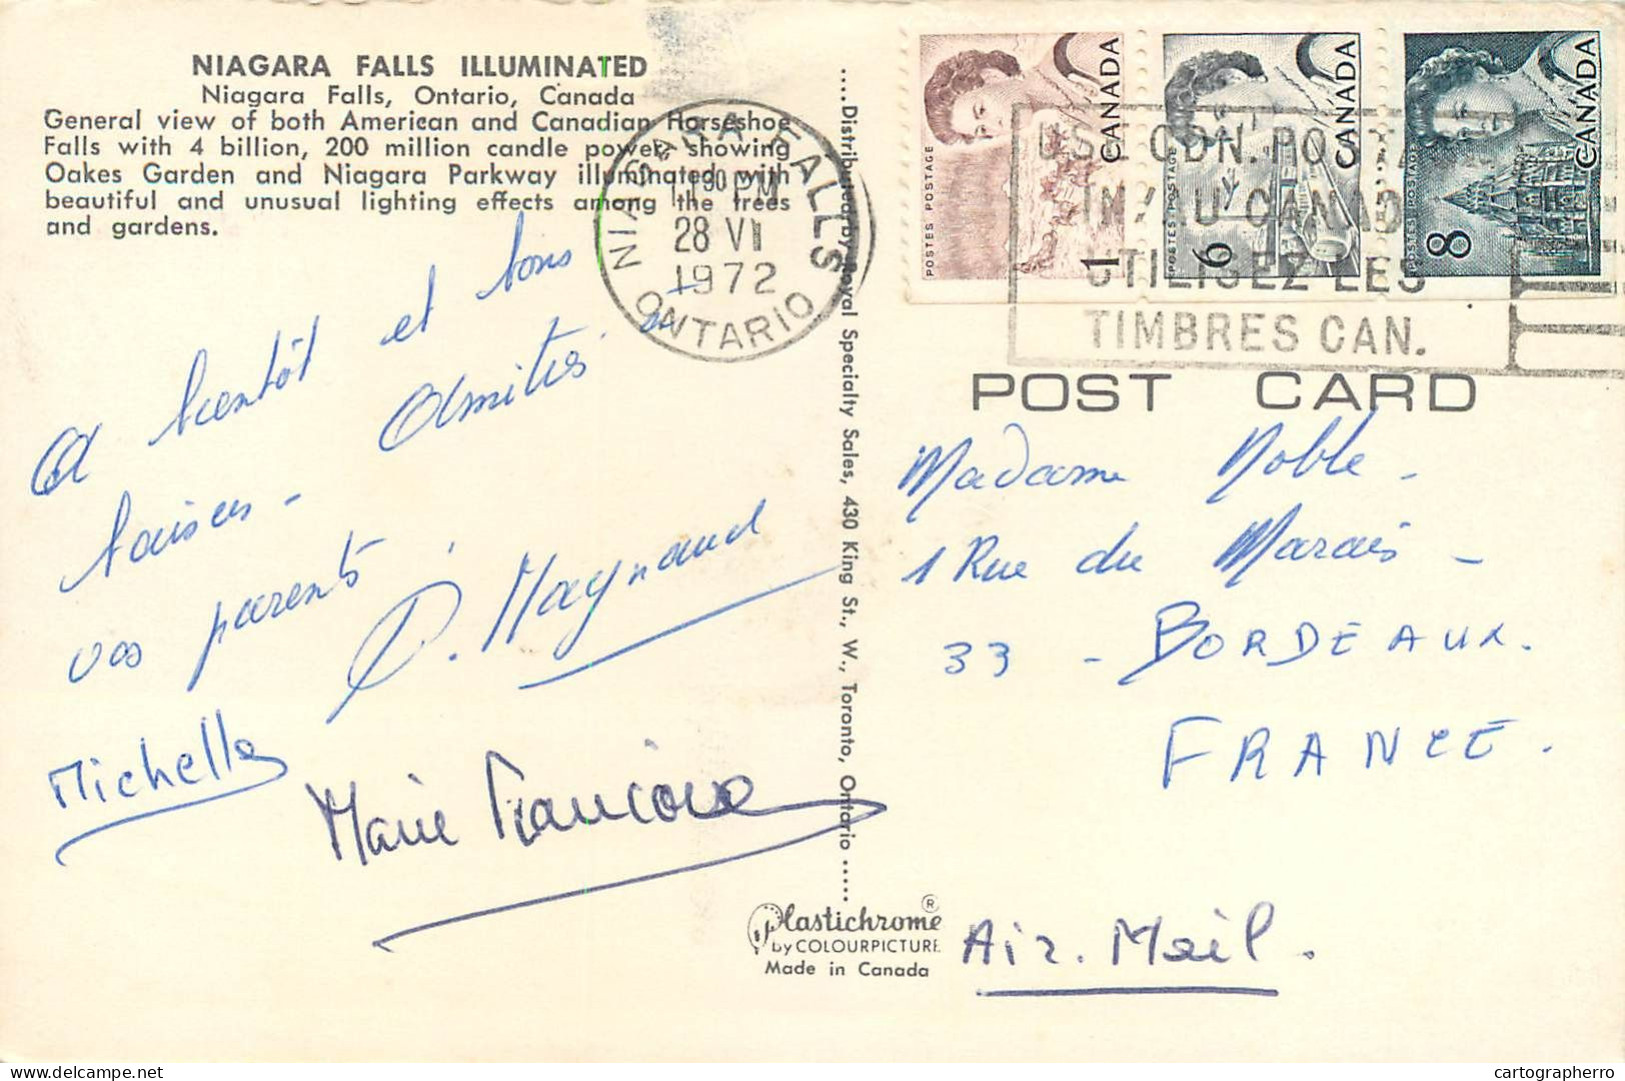 NIAGARA FALLS ILLUMINATED
Niagara Falls, Ontario, Canada
General view of both American and Canadian Horseshoe
Falls with 4 billion, 200 million candle power, showing
Oakes Garden and Niagara Parkway illuminated with
beautiful and unusual lighting effects among the trees
and gardens.
A bientôt et bons
baisers -
Amitiés à
vos parents.
D. Maynaud
Michelle
Marie Françoise
....Distributed by Royal Specialty Sales, 430 King St., W., Toronto, Ontario .....
Plastichrome ®
by COLOURPICTURE
Made in Canada
NIAGARA FALLS
PM
28 VI
1972
ONTARIO
POSTES POSTAGE
1
CANADA
POSTES POSTAGE
6
CANADA
POSTES POSTAGE
8
CANADA
USE CDN. POST
IN/AU CANAD
UTILISEZ LES
TIMBRES CAN.
POST CARD
Madame Noble -
1 Rue du Marais -
33 - BORDEAUX.
FRANCE.
Air. Mail.
delcampe.net
cartographerro